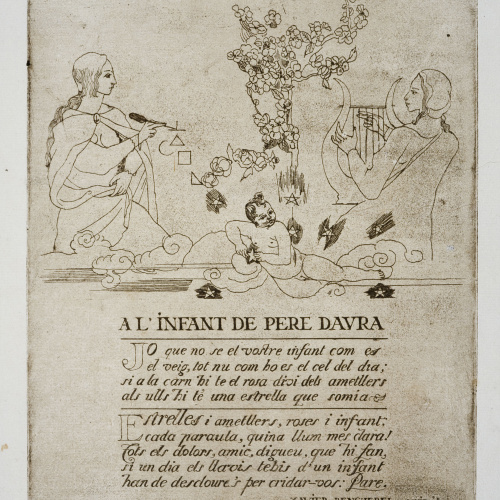 A L' INFANT DE PERE DAURA
JO que no se el vostre infant com es
el veig, tot nu com ho es el cel del dia;
si a la carn hi te el rosa dixi dels ametllers
als ulls hi té una estrella que somia
Estrelles i ametllers, roses i infant;
cada paraula, quina llum més clara!
Tots els dolors, amic, digueu, que hi fan,
si un dia els llavis tebis d'un infant
han de descloure's per cridar-vos: Pare.
XAVIER BENGUEREL